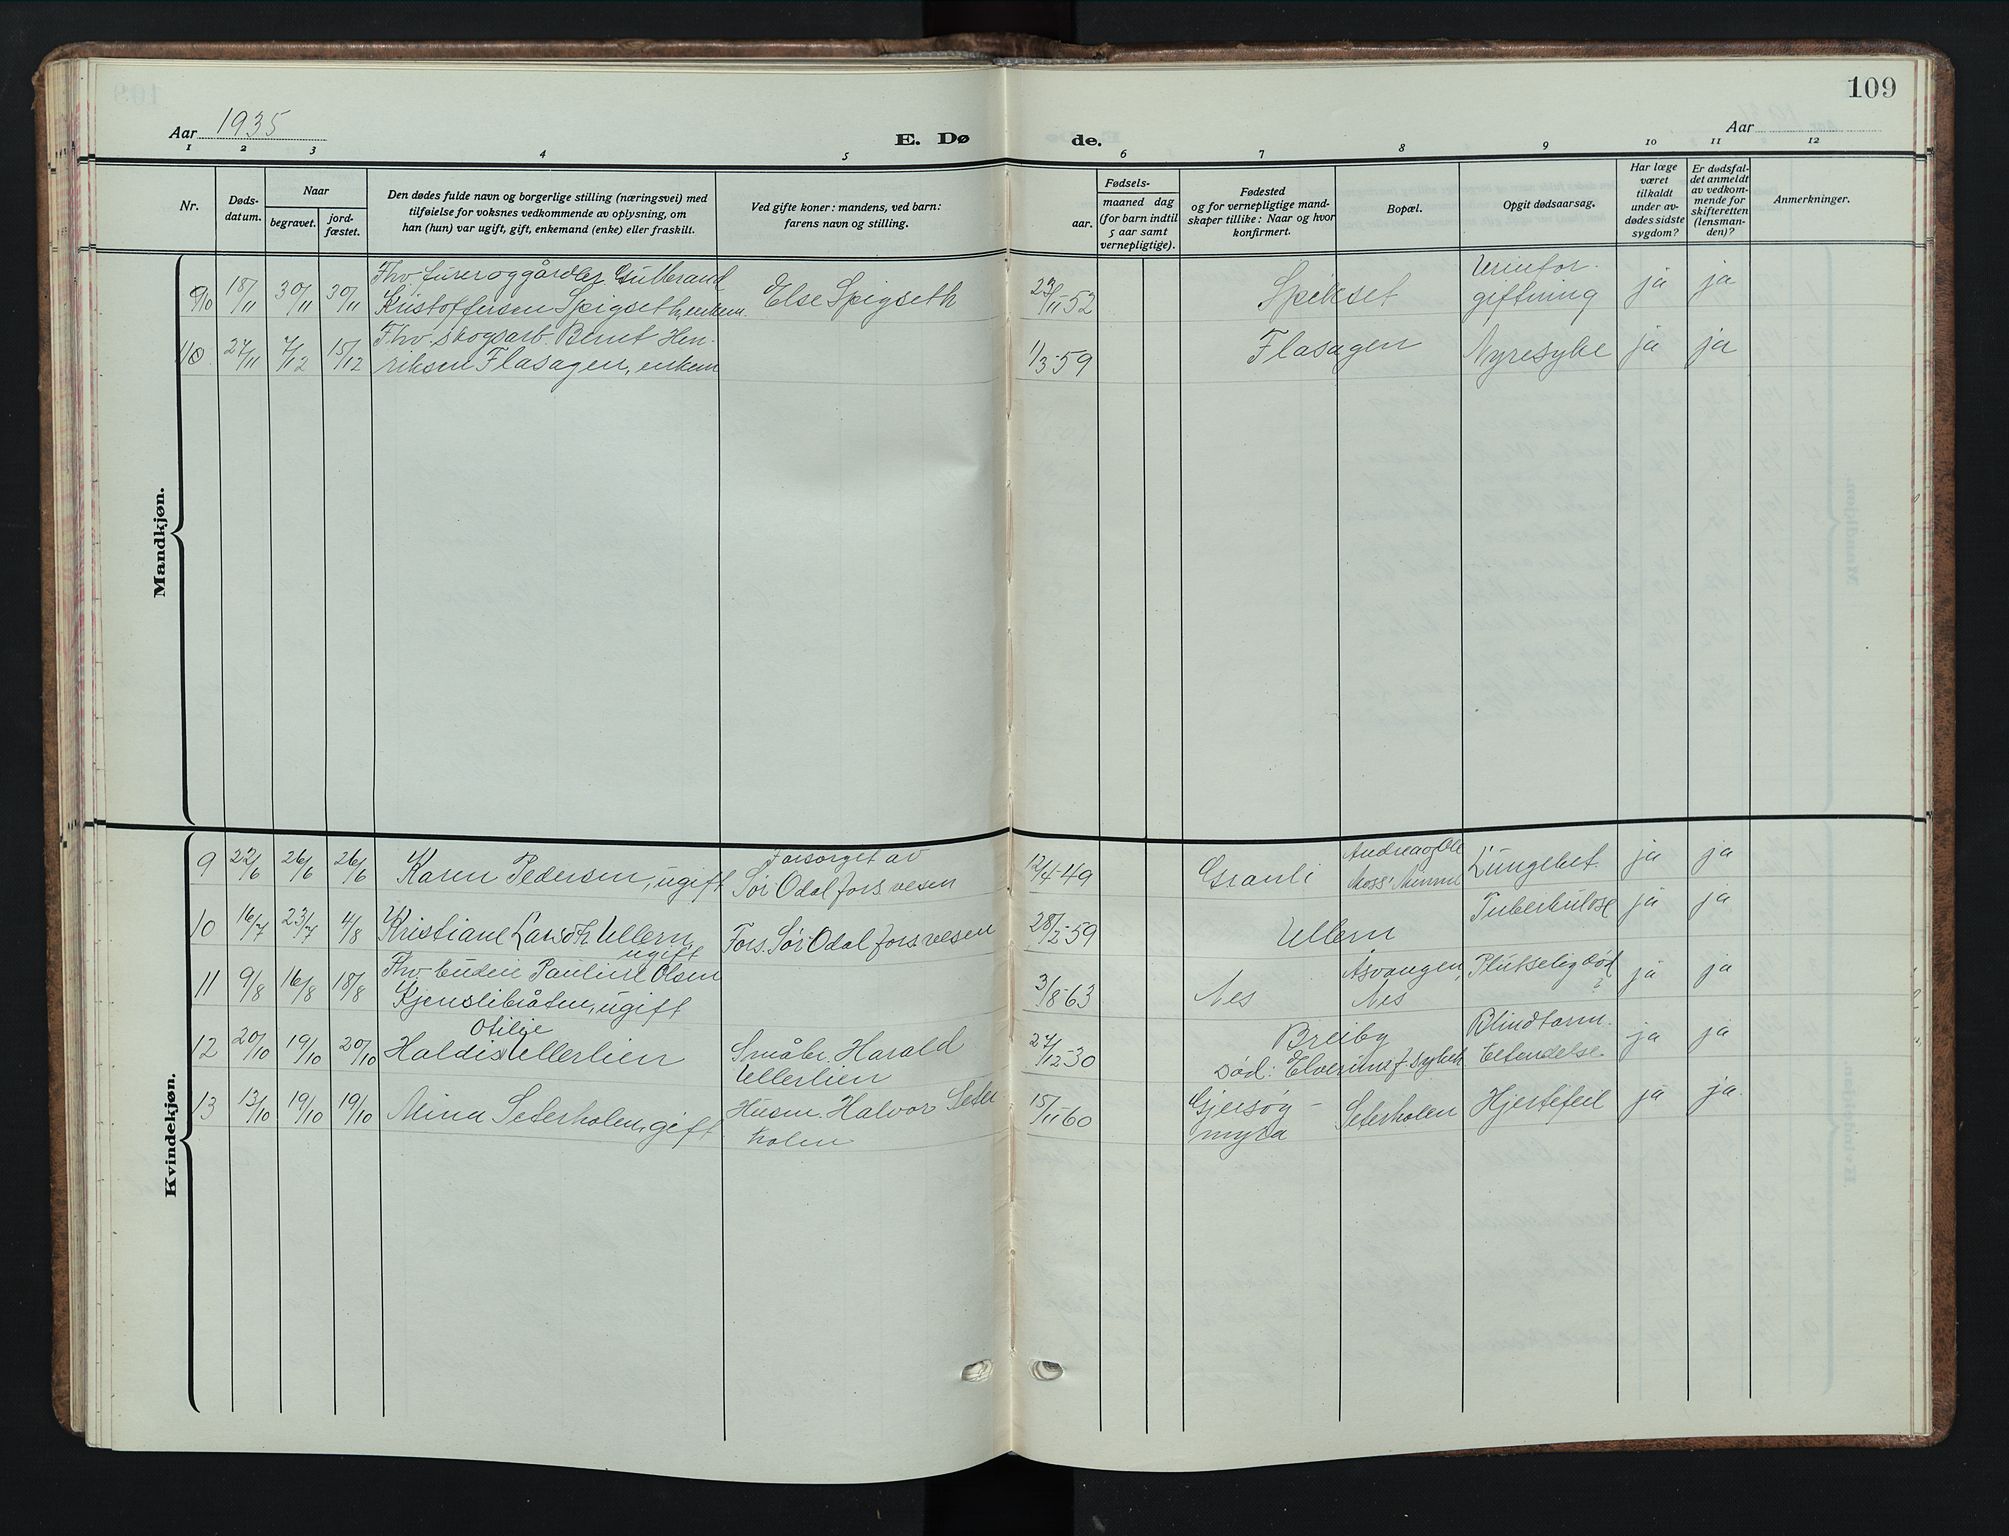 109
Aar 1935
E. Dø
de.
Aar
1 2 3 4 5 6 7 8 9 10 11 12
Nr.
Døds-
datum.
Naar
begravet.
jord-
fæstet.
Den dødes fulde navn og borgerlige stilling (næringsvei) med
tilføielse for voksnes vedkommende av oplysning, om
han (hun) var ugift, gift, enkemand (enke) eller fraskilt.
Ved gifte koner: mandens, ved barn:
farens navn og stilling.
Fødsels-
aar.
maaned dag
(for barn indtil
5 aar samt
vernepligtige).
Fødested
og for vernepligtige mand-
skaper tillike: Naar og hvor
konfirmert.
Bopæl.
Opgit dødsaarsag.
Har læge
været
tilkaldt
under av-
dødes sidste
sygdom?
Er dødsfal-
det anmeldt
av vedkom-
mende for
skifteretten
(lensman-
den)?
Anmerkninger.
Mandkjøn.
18/11 30/11 30/11 Fhv. furer og gårdbr. Gulbrand
Kristoffersen Spigseth, enkem. Else Spigseth 23/11-52 Spikset Urinfor-
giftning ja ja
27/11 7/12 15/12 Fhv. skogsarb. Bernt Hen-
riksen Flasagen, enkem 1/3-59 Flasagen Nyresyke ja ja
Kvindekjøn.
9 22/6 26/6 26/6 Karen Pedersen, ugift Forsørget av
Sør Odal forsvesen 12/4-49 Granli Moss, Lungebet. ja ja
10 16/7 23/7 4/8 Kristiane Ullern,
ugift Fors. Sør Odal forsvesen 28/2-59 Ullern Tuberkulose ja ja
11 9/8 16/8 18/8 Fhv. budeie Pauline Olsen
Kjenslibråten, ugift 3/8-63 Nes Åsvangen,
Nes Plutselig død ja ja
12 20/10 19/10 20/10 Haldis Otilie Ullerlien Småbr. Harald
Ullerlien 27/12-30 Breiby
Død: Elverums f. sykeh Blindtarm-
betendelse ja ja
13 13/10 19/10 19/10 Mina Seterholen, gift Husm. Halvor Seter
holen 15/11-60 Gjersøg-
myra Seterholen Hjertefeil ja ja.